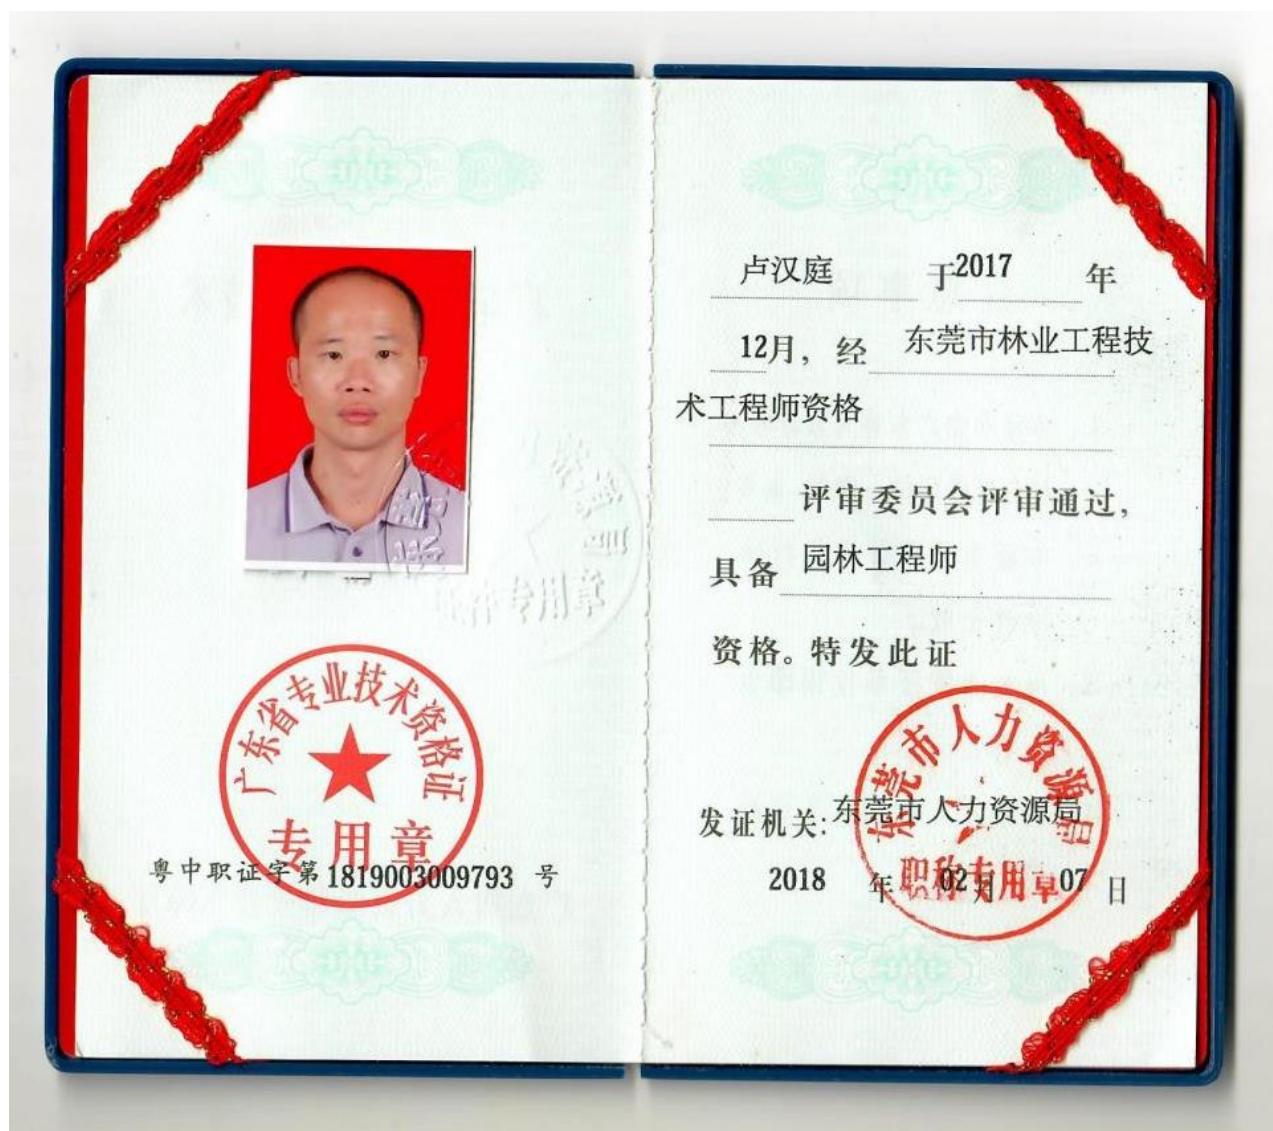 广东省专业技术资格证
专用章
粤中职证字第1819003009793 号
卢汉庭 于2017 年
12月，经 东莞市林业工程技
术工程师资格
评审委员会评审通过，
具备 园林工程师
资格。特发此证
东莞市人力资源局
职称专用章
发证机关:东莞市人力资源局
2018 年 02月 07 日